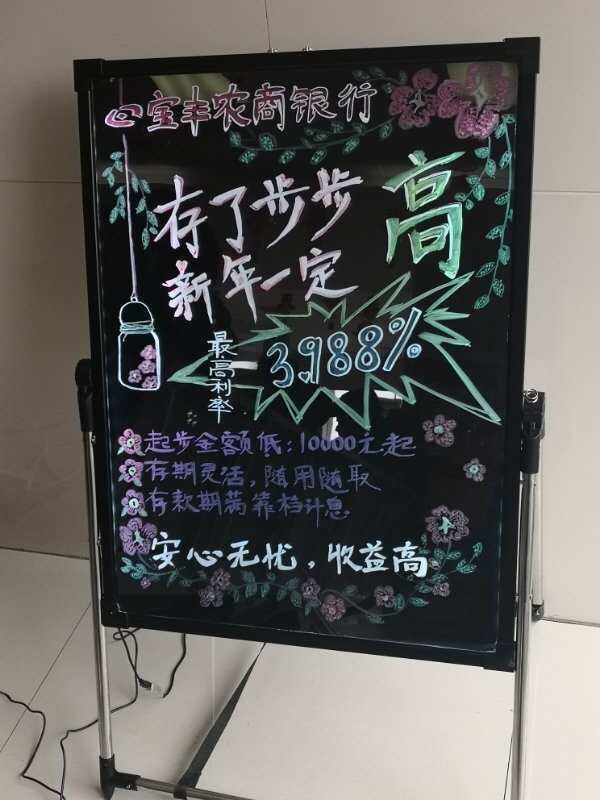 宝丰农商银行
存了步步高
新年一定
最高利率
3.988%
起步金额低:10000元起
存期灵活,随用随取
存款期满靠档计息
安心无忧,收益高